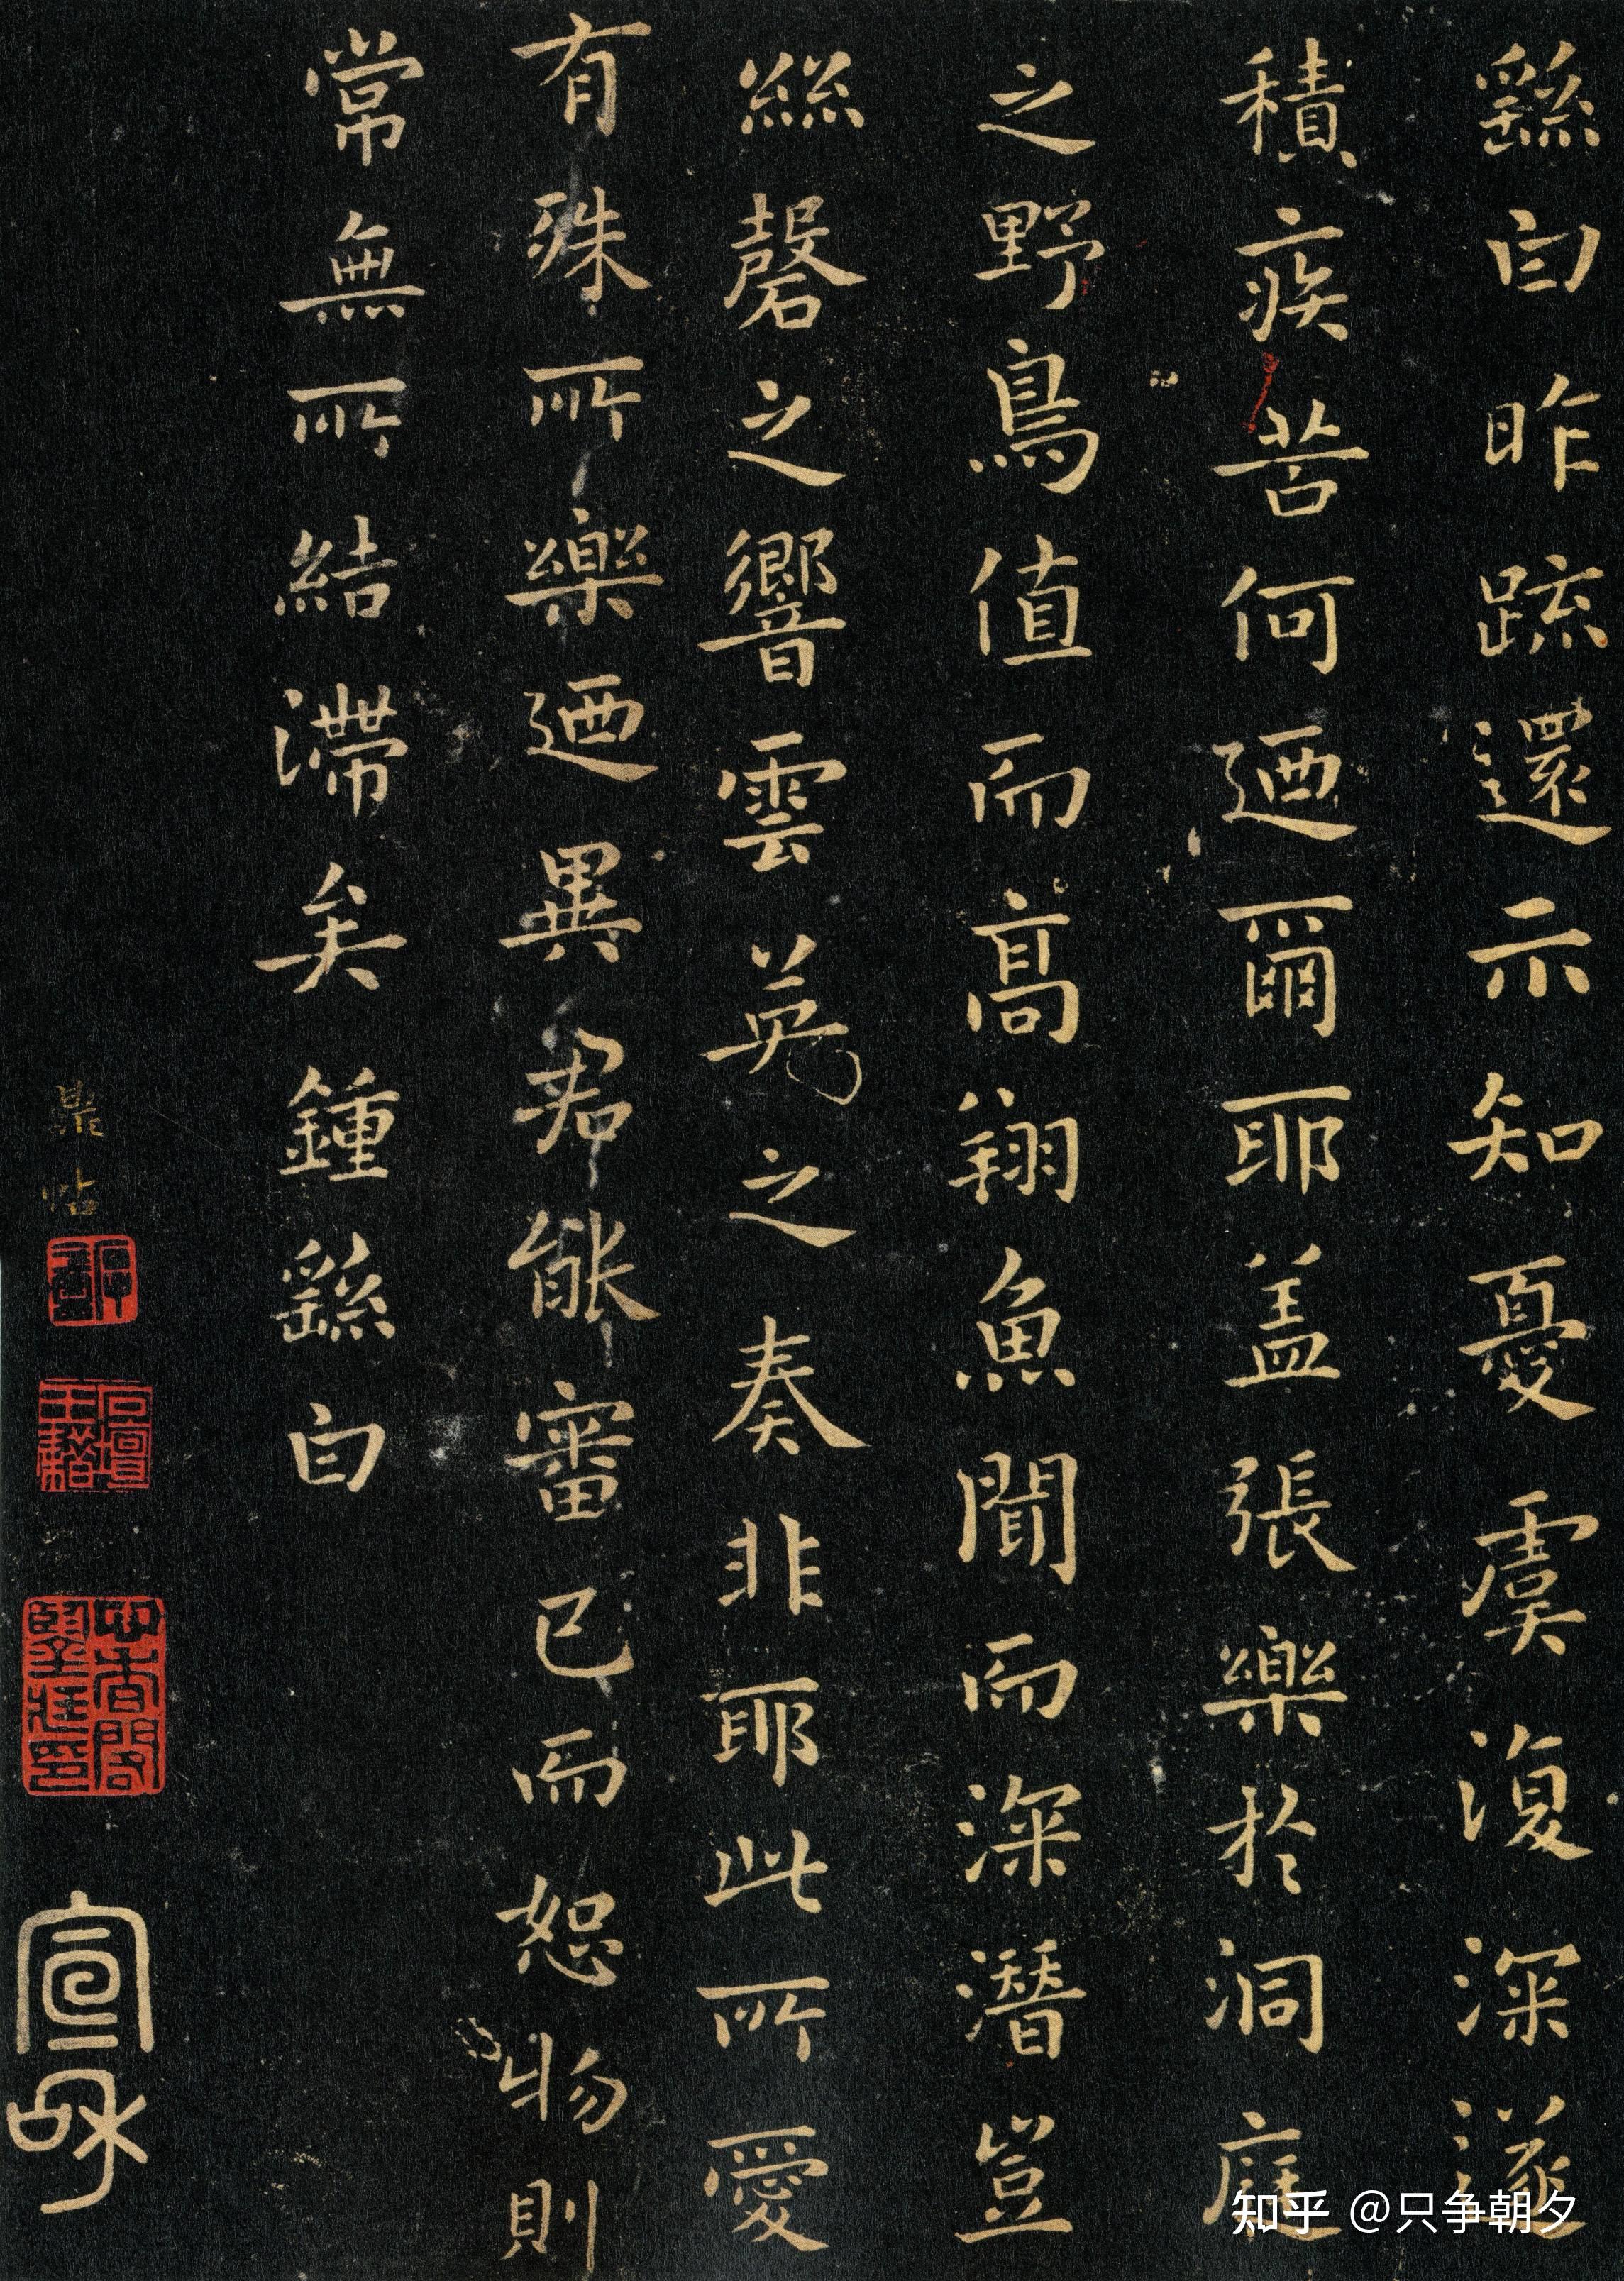 繇白昨疏還示知憂虞復深遂
積疾苦何迺爾耶盖張樂於洞庭
之野鳥值而高翔魚聞而深潛豈
絲磬之響雲英之奏非耶此所愛
有殊所樂迺異君能審己而恕物則
常無所結滯矣鍾繇白
鼎帖
宣和
知乎 @只争朝夕